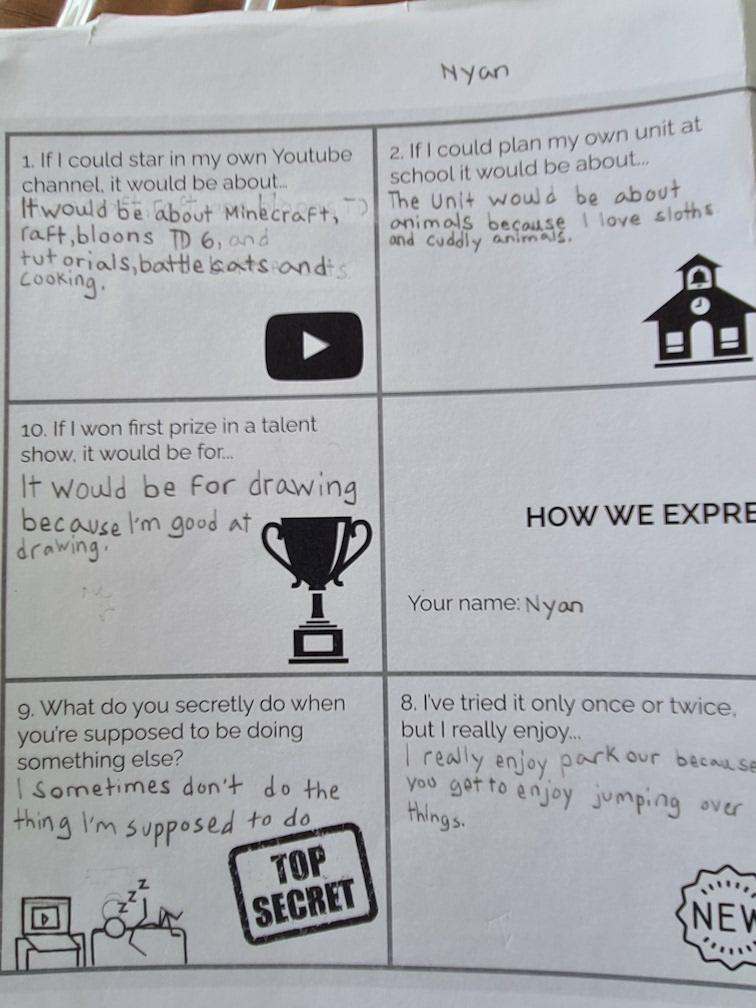 Nyan
1. If I could star in my own Youtube
channel, it would be about...
It would be about Minecraft,
raft, bloons TD 6, and
tutorials, battle cats and
cooking.
2. If I could plan my own unit at
school it would be about...
The Unit would be about
animals because I love sloths
and cuddly animals.
10. If I won first prize in a talent
show, it would be for...
It would be for drawing
because I'm good at
drawing.
HOW WE EXPRE
Your name: Nyan
9. What do you secretly do when
you're supposed to be doing
something else?
I sometimes don't do the
thing I'm supposed to do
TOP
SECRET
zzz
8. I've tried it only once or twice,
but I really enjoy...
I really enjoy parkour because
you get to enjoy jumping over
things.
NEW